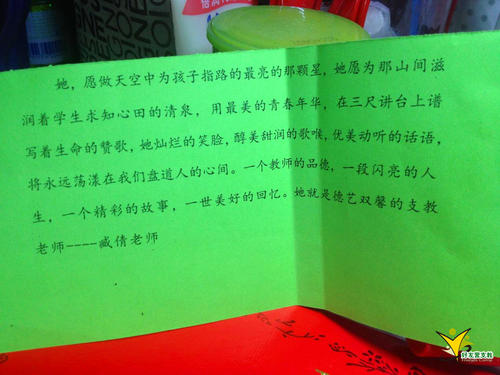 她，愿做天空中为孩子指路的最亮的那颗星，她愿为那山间滋
润着学生求知心田的清泉，用最美的青春年华，在三尺讲台上谱
写着生命的赞歌，她灿烂的笑脸，醇美甜润的歌喉，优美动听的话语，
将永远荡漾在我们盘道人的心间。一个教师的品德，一段闪亮的人
生，一个精彩的故事，一世美好的回忆。她就是德艺双馨的支教
老师----臧倩老师
好友营支教